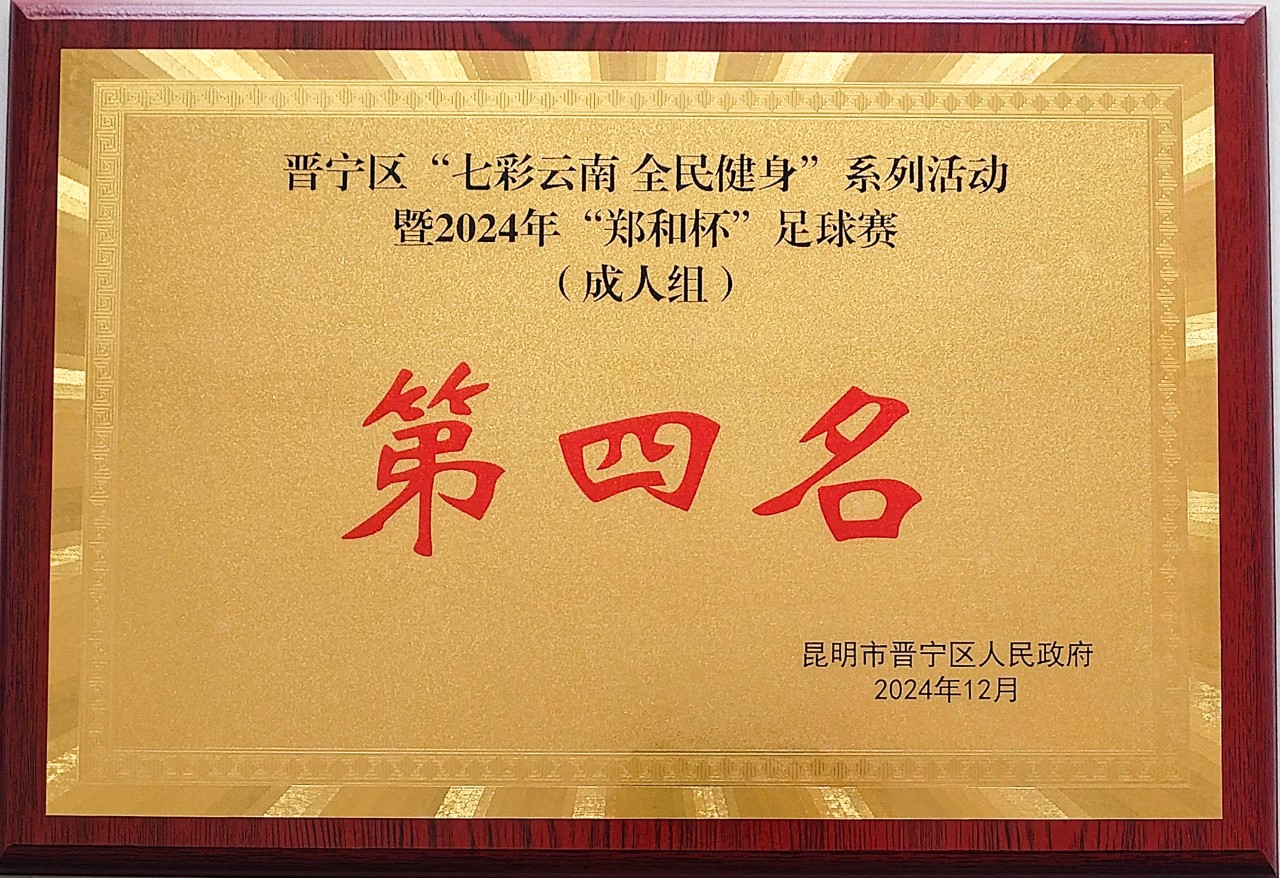 晋宁区“七彩云南 全民健身”系列活动
暨2024年“郑和杯”足球赛
（成人组）
第四名
昆明市晋宁区人民政府
2024年12月